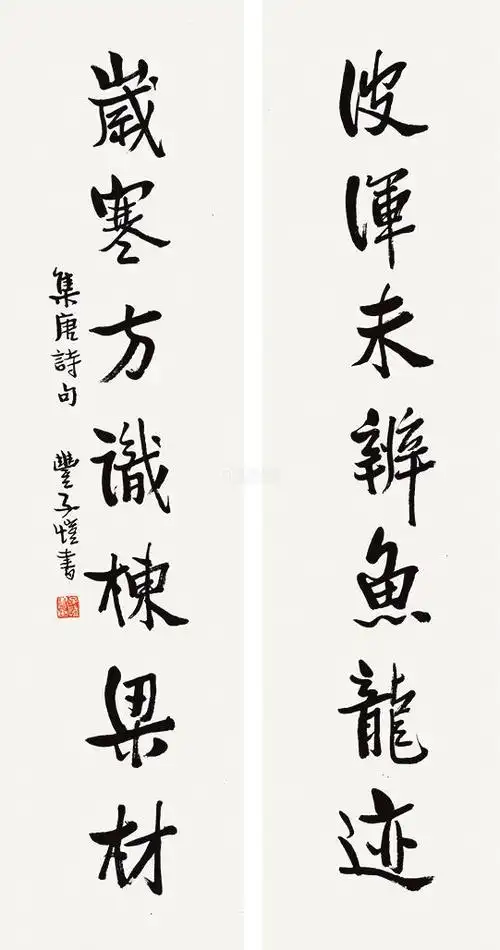 波渾未辨魚龍迹
歲寒方識棟梁材
集唐詩句 豐子愷書